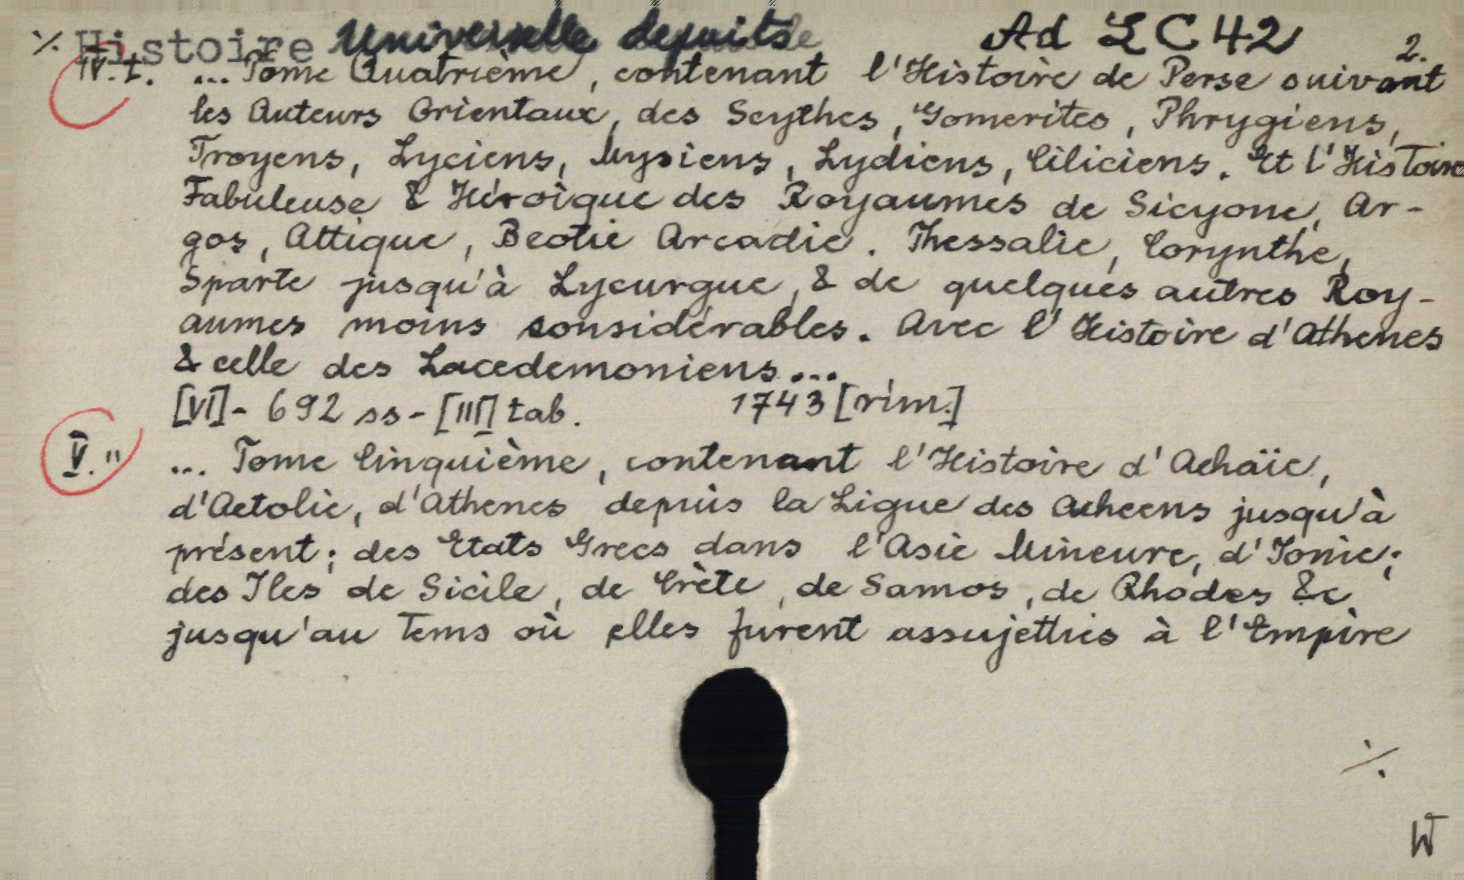 ·/· Histoire Universelle depuis le Ad LC 42
2.
IV. t. ... Tome Quatrième, contenant l'Histoire de Perse suivant
les Auteurs Orientaux, des Scythes, Gomerites, Phrygiens,
Troyens, Lyciens, Mysiens, Lydiens, Ciliciens. Et l'Histoire
Fabuleuse & Héroïque des Royaumes de Sicyone, Ar-
gos, Attique, Beotie Arcadie. Thessalie, Corynthe,
Sparte jusqu'à Lycurgue, & de quelques autres Roy-
aumes moins considérables. Avec l'Histoire d'Athenes
& celle des Lacedemoniens...
[VI] - 692 ss - [III] tab. 1743 [rím.]
V. " ... Tome Cinquième, contenant l'Histoire d'Achaïe,
d'Aetolie, d'Athenes depuis la Ligue des Acheens jusqu'à
présent; des Etats Grecs dans l'Asie Mineure, d'Ionie;
des Iles de Sicile, de Crète, de Samos, de Rhodes &c
jusqu'au Tems où elles furent assujetties à l'Empire
·/·
W